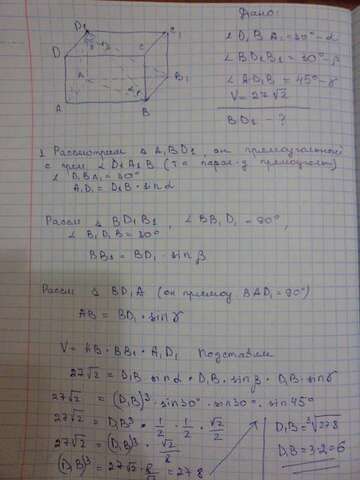 D₁
C₁
D
C
A₁
B₁
A
B
Дано:
∠D₁BA₁=30°-α
∠BD₁B₁=30°-β
∠AD₁B=45°-γ
V=27√2
BD₁-?
1. Рассмотрим Δ A₁BD₁, он прямоугольный
с прям. ∠D₁A₁B (т.к парал-д прямоугольн)
∠D₁BA₁=30°
A₁D₁=D₁B·sinα
Рассм Δ BD₁B₁, ∠BB₁D₁=90°,
∠B₁D₁B=30°
BB₁=BD₁·sinβ
Рассм Δ BD₁A (он прямоу. BAD₁=90°)
AB=BD₁·sinγ
V=AB·BB₁·A₁D₁ Подставим
27√2=D₁B sinα·D₁B·sinβ·D₁B·sinγ
27√2=(D₁B)³·sin30°·sin30°·sin45°
27√2=D₁B³·1/2·1/2·√2/2
27√2=(D₁B)³·√2/8
(D₁B)³=27√2·8/√2=27·8
D₁B=³√27·8
D₁B=3·2=6